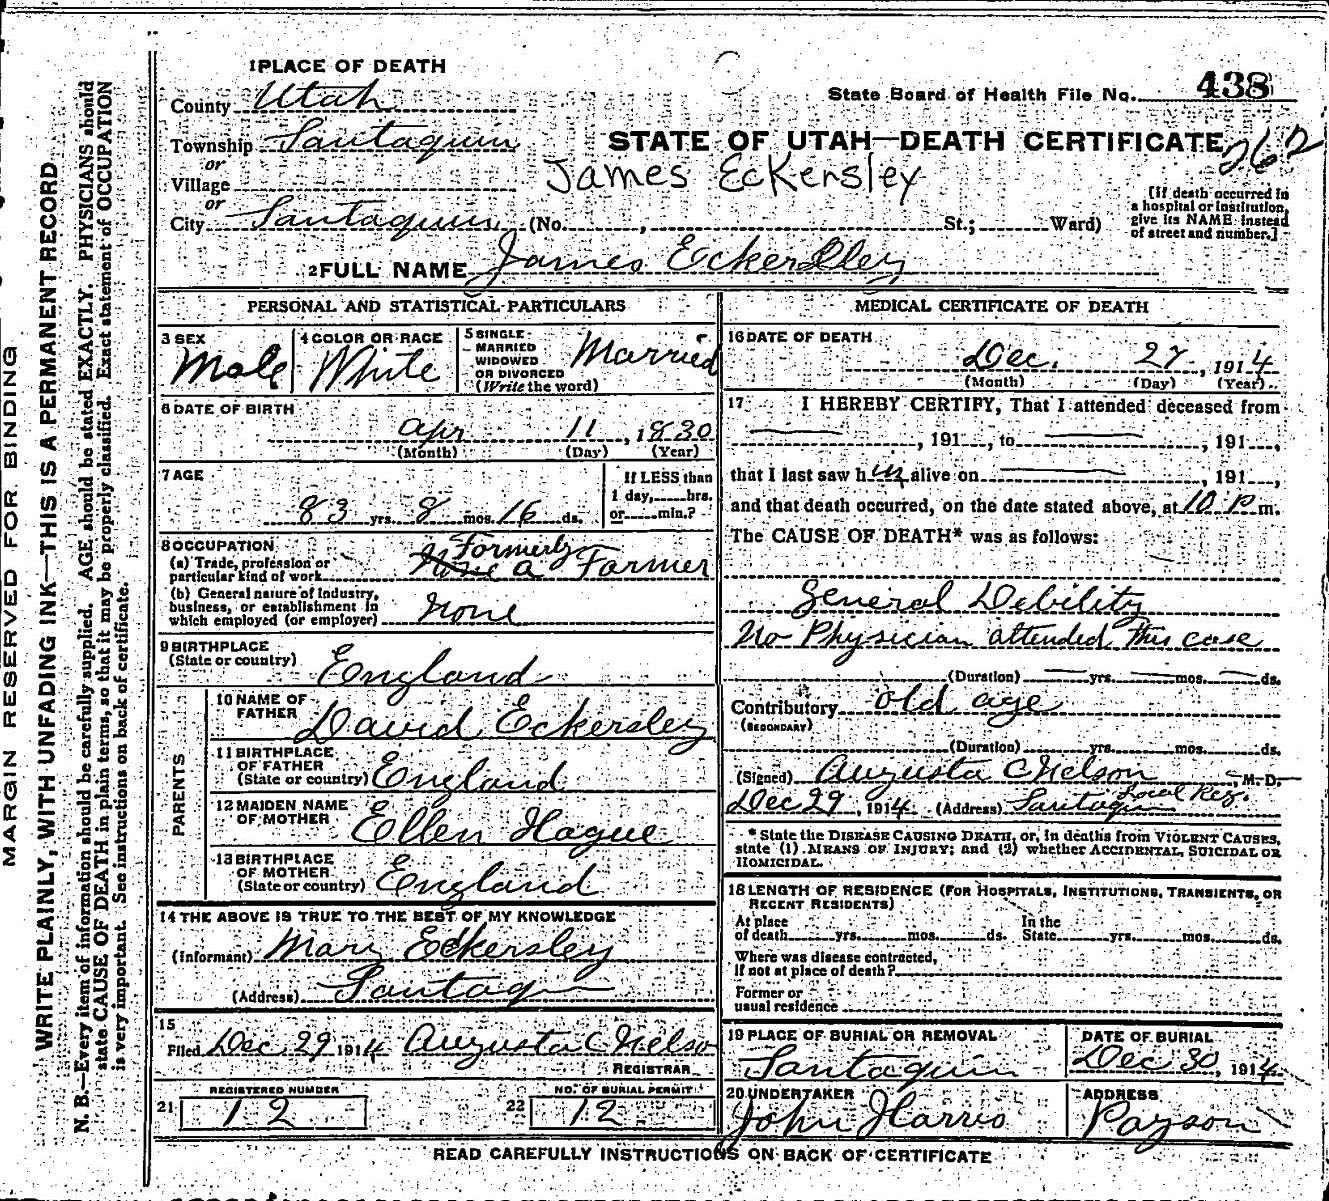 MARGIN RESERVED FOR BINDING
WRITE PLAINLY, WITH UNFADING INK—THIS IS A PERMANENT RECORD
N. B.—Every item of information should be carefully supplied. AGE should be stated EXACTLY. PHYSICIANS should
state CAUSE OF DEATH in plain terms, so that it may be properly classified. Exact statement of OCCUPATION
is very important. See instructions on back of certificate.
1 PLACE OF DEATH
County Utah
State Board of Health File No. 438
Township Santaquin
STATE OF UTAH—DEATH CERTIFICATE 262
or
Village
James Eckersley
[If death occurred in
a hospital or institution,
give its NAME instead
of street and number.]
or
City Santaquin (No. , St.; Ward)
2 FULL NAME James Eckersley
PERSONAL AND STATISTICAL PARTICULARS
3 SEX
Male
4 COLOR OR RACE
White
5 SINGLE
MARRIED
WIDOWED
OR DIVORCED
(Write the word)
Married
6 DATE OF BIRTH
Apr 11, 1830
(Month) (Day) (Year)
7 AGE
83 yrs. 8 mos. 16 ds.
If LESS than
1 day, hrs.
or min.?
8 OCCUPATION
(a) Trade, profession or
particular kind of work
Formerly
None a Farmer
(b) General nature of Industry,
business, or establishment in
which employed (or employer) None
9 BIRTHPLACE
(State or country) England
PARENTS
10 NAME OF
FATHER David Eckersley
11 BIRTHPLACE
OF FATHER
(State or country) England
12 MAIDEN NAME
OF MOTHER Ellen Hague
13 BIRTHPLACE
OF MOTHER
(State or country) England
14 THE ABOVE IS TRUE TO THE BEST OF MY KNOWLEDGE
(Informant) Mary Eckersley
(Address) Santaquin
15
Filed Dec. 29 1914 Augusta C Nelson
REGISTRAR
REGISTERED NUMBER
21 12
NO. OF BURIAL PERMIT
22 12
MEDICAL CERTIFICATE OF DEATH
16 DATE OF DEATH
Dec. 27, 1914
(Month) (Day) (Year)
17 I HEREBY CERTIFY, That I attended deceased from
—, 191—, to —, 191—,
that I last saw him alive on —, 191—,
and that death occurred, on the date stated above, at 10 P. m.
The CAUSE OF DEATH* was as follows:
General Debility
No Physician attended this case
(Duration) — yrs. — mos. — ds.
Contributory old age
(SECONDARY)
(Duration) yrs. mos. ds.
(Signed) Augusta C Nelson M. D.
Local Reg.
Dec 29, 1914 (Address) Santaquin
*State the DISEASE CAUSING DEATH, or, in deaths from VIOLENT CAUSES,
state (1) MEANS OF INJURY; and (2) whether ACCIDENTAL, SUICIDAL OR
HOMICIDAL.
18 LENGTH OF RESIDENCE (FOR HOSPITALS, INSTITUTIONS, TRANSIENTS, OR
RECENT RESIDENTS)
At place
of death yrs. mos. ds.
In the
State yrs. mos. ds.
Where was disease contracted,
if not at place of death?
Former or
usual residence
19 PLACE OF BURIAL OR REMOVAL
Santaquin
DATE OF BURIAL
Dec 30, 1914
20 UNDERTAKER
John Harris
ADDRESS
Payson
READ CAREFULLY INSTRUCTIONS ON BACK OF CERTIFICATE